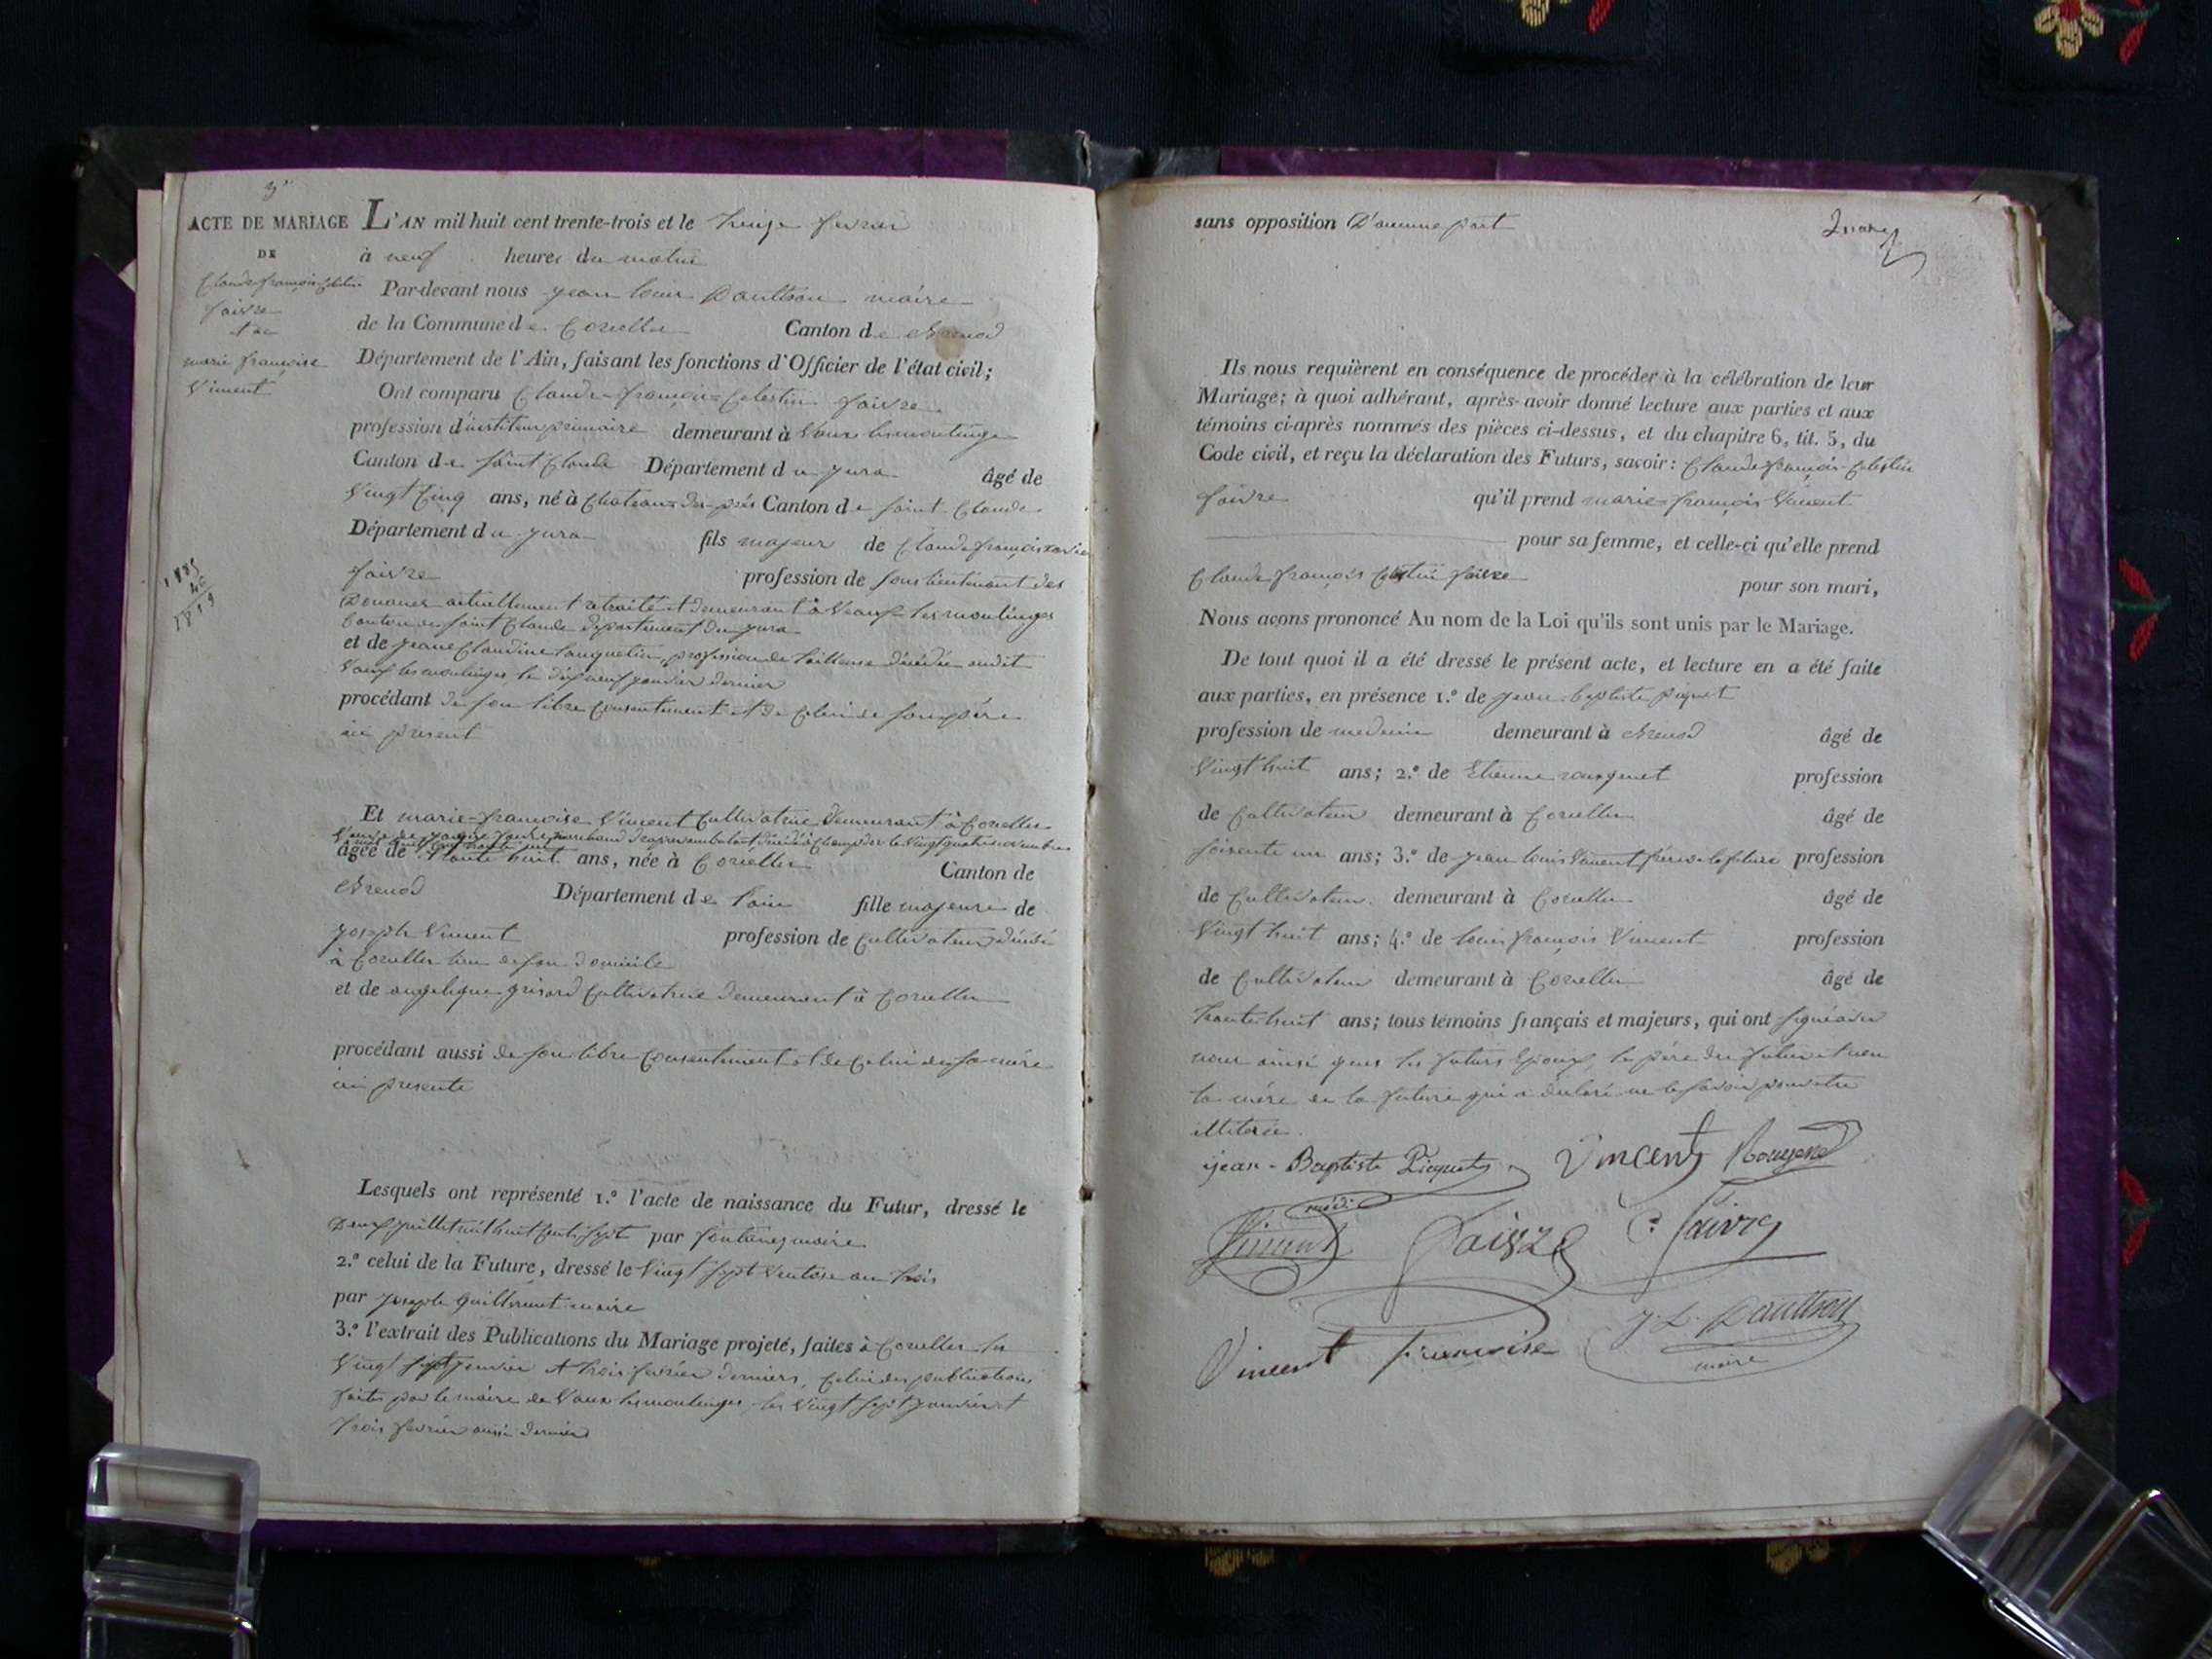 3e
ACTE DE MARIAGE
DE
Claude françois Celestin
faivre
marie françoise
Vincent
L'AN mil huit cent trente-trois et le treize fevrier
à neuf heures du matin
Par-devant nous jean louis Daultson maire
de la Commune de Corcelles Canton de Brenod
Département de l'Ain, faisant les fonctions d'Officier de l'état civil;
Ont comparu Claude-françois-Celestin faivre
profession d'instituteur primaire demeurant à Vaux les moulinges
Canton de saint Claude Département du jura âgé de
Vingt Cinq ans, né à Chateau-des-prés Canton de saint Claude
Département du jura fils majeur de Claude françois xavier
faivre profession de sous lieutenant des
Douanes actuellement retraité et demeurant à Vaux les moulinges
Canton de saint Claude departement du jura
et de jeane Claudine profession de tailleuse décédée audit
Vaux les moulinges le dix neuf janvier dernier
procédant de son libre Consentement et de Celui de son père
ici present
Et marie-françoise Vincent Cultivatrice demeurant à Corcelles
âgée de trente huit ans, née à Corcelles Canton de
Brenod Département de l'ain fille majeure de
joseph Vincent profession de Cultivateur décédé
à Corcelles lieu de son domicile
et de angelique grisard Cultivatrice demeurant à Corcelles
procédant aussi de son libre Consentement et de Celui de sa mère
ici presente
Lesquels ont représenté 1.º l'acte de naissance du Futur, dressé le
Deux juillet mil huit Cent sept par fontanez maire
2.º celui de la Future, dressé le Vingt sept Ventose an trois
par joseph Guillermet maire
3.º l'extrait des Publications du Mariage projeté, faites à Corcelles les
Vingt sept janvier et trois février derniers, Celui des publications
faites par le maire de Vaux les moulinges les Vingt sept janvier et
trois février aussi derniers
1885
26
1859
sans opposition D'aucune part
Ils nous requièrent en conséquence de procéder à la célébration de leur
Mariage; à quoi adhérant, après avoir donné lecture aux parties et aux
témoins ci-après nommés des pièces ci-dessus, et du chapitre 6, tit. 5, du
Code civil, et reçu la déclaration des Futurs, savoir: Claude françois-Celestin
faivre qu'il prend marie françoise Vincent
pour sa femme, et celle-ci qu'elle prend
Claude françois Celestin faivre pour son mari,
Nous avons prononcé Au nom de la Loi qu'ils sont unis par le Mariage.
De tout quoi il a été dressé le présent acte, et lecture en a été faite
aux parties, en présence 1.º de jean-baptiste piquet
profession de medecin demeurant à Brenod âgé de
Vingt huit ans; 2.º de Etienne profession
de Cultivateur demeurant à Corcelles âgé de
soixante un ans; 3.º de jean louis Vincent frère de la future profession
de Cultivateur demeurant à Corcelles âgé de
Vingt huit ans; 4.º de louis françois Vincent profession
de Cultivateur demeurant à Corcelles âgé de
trente huit ans; tous témoins français et majeurs, qui ont signé avec
nous ainsi que les futurs Epoux, le père du futur et non
la mère de la future qui a déclaré ne le savoir pour etre
illiterée.
jean-Baptiste Piquet Vincent
méd.
Vincent faivre C. faivre
Vincent françoise J. L. Daultson
maire